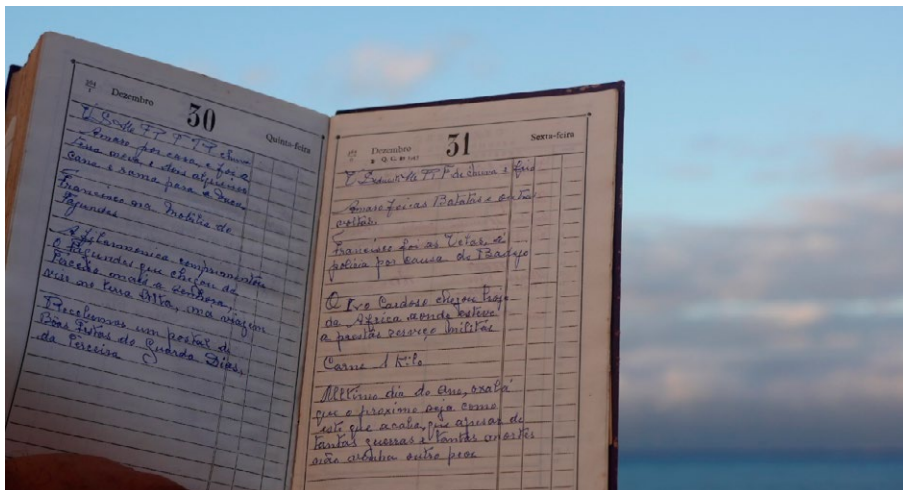 Dezembro 30 Quinta-feira
Amaro por casa, e fora
uma meia, e dous alqueires
cano e rama para a
Francisco na Mobilia do
Fagundes
A Filarmonica comprimentou
O Fagundes que chegou da
Terceira mais a Senhora,
vin no terra Alta, má viagem
Recebemos um postal de
Bôas Festas do Guarda Dias,
da Terceira
Dezembro 31 Sexta-feira
de chuva e frio
Amaro foi as Batatas e outras
voltas.
Francisco foi as Velas, á
policia por causa do
O Ivo Cardoso chegou hoje
da Africa aonde esteve
a prestar serviço militar
Carne 1 Kilo
Ultimo dia do Ano, oxalá
que o proximo seja como
este que acaba, que apesar de
tantas guerras e tantas mortes
não venha outro peor